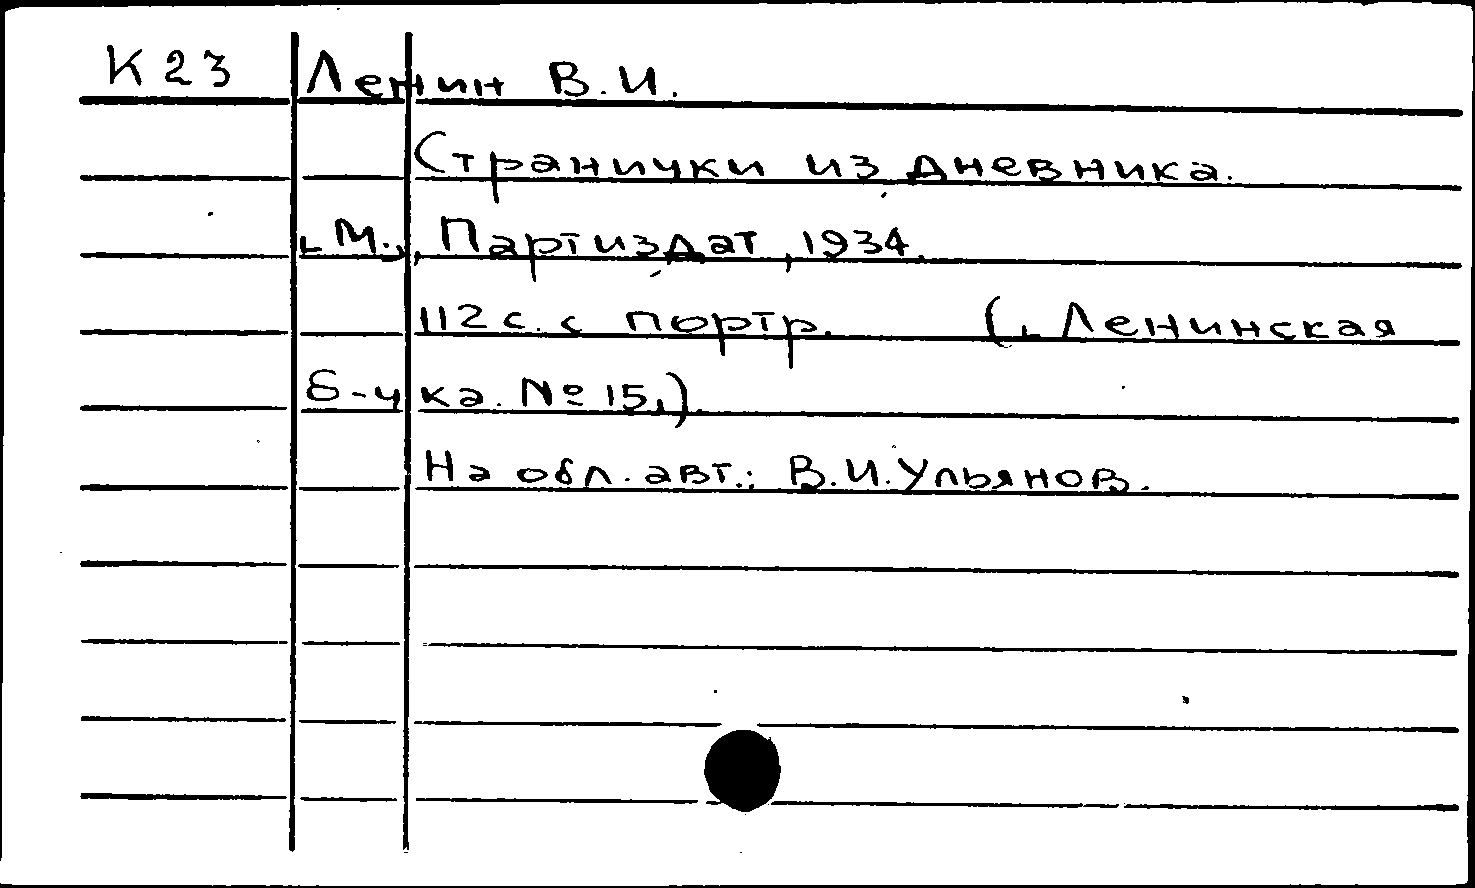 К 23 Ленин В.И.
Странички из дневника.
[М.], Партиздат, 1934.
112 с. с портр. ([Ленинская
б-чка. № 15])
На обл. авт.: В.И. Ульянов.